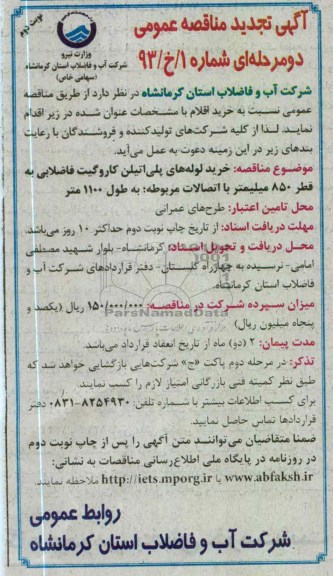 نوبت دوم
آگهی تجدید مناقصه عمومی
دومرحله‌ای شماره ۱/خ/۹۳
وزارت نیرو
شرکت آب و فاضلاب استان کرمانشاه
(سهامی خاص)
شرکت آب و فاضلاب استان کرمانشاه در نظر دارد از طریق مناقصه
عمومی نسبت به خرید اقلام با مشخصات عنوان شده در زیر اقدام
نماید. لذا از کلیه شرکت‌های تولیدکننده و فروشندگان با رعایت
بندهای زیر در این زمینه دعوت به عمل می‌آید.
موضوع مناقصه: خرید لوله‌های پلی‌اتیلن کاروگیت فاضلابی به
قطر ۸۵۰ میلیمتر با اتصالات مربوطه؛ به طول ۱۱۰۰ متر
محل تامین اعتبار: طرح‌های عمرانی
مهلت دریافت اسناد: از تاریخ چاپ نوبت دوم حداکثر ۱۰ روز می‌باشد.
محل دریافت و تحویل اسناد: کرمانشاه- بلوار شهید مصطفی
امامی- نرسیده به چهارراه گلستان- دفتر قراردادهای شرکت آب و
فاضلاب استان کرمانشاه.
میزان سپرده شرکت در مناقصه: ۱۵۰/۰۰۰/۰۰۰ ریال (یکصد و
پنجاه میلیون ریال)
ParsNamadData
مدت پیمان: ۲ (دو) ماه از تاریخ انعقاد قرارداد می‌باشد.
تذکر: در مرحله دوم پاکت «ج» شرکت‌هایی بازگشایی خواهد شد که
طبق نظر کمیته فنی بازرگانی امتیاز لازم را کسب نمایند.
برای کسب اطلاعات بیشتر با شماره تلفن: ۸۲۵۴۹۳۰-۰۸۳۱ دفتر
قراردادها تماس حاصل نمایید.
ضمنا متقاضیان می‌توانند متن آگهی را پس از چاپ نوبت دوم
در روزنامه در پایگاه ملی اطلاع‌رسانی مناقصات به نشانی:
www.abfaksh.ir یا http://iets.mporg.ir ملاحظه نمایند.
روابط عمومی
شرکت آب و فاضلاب استان کرمانشاه